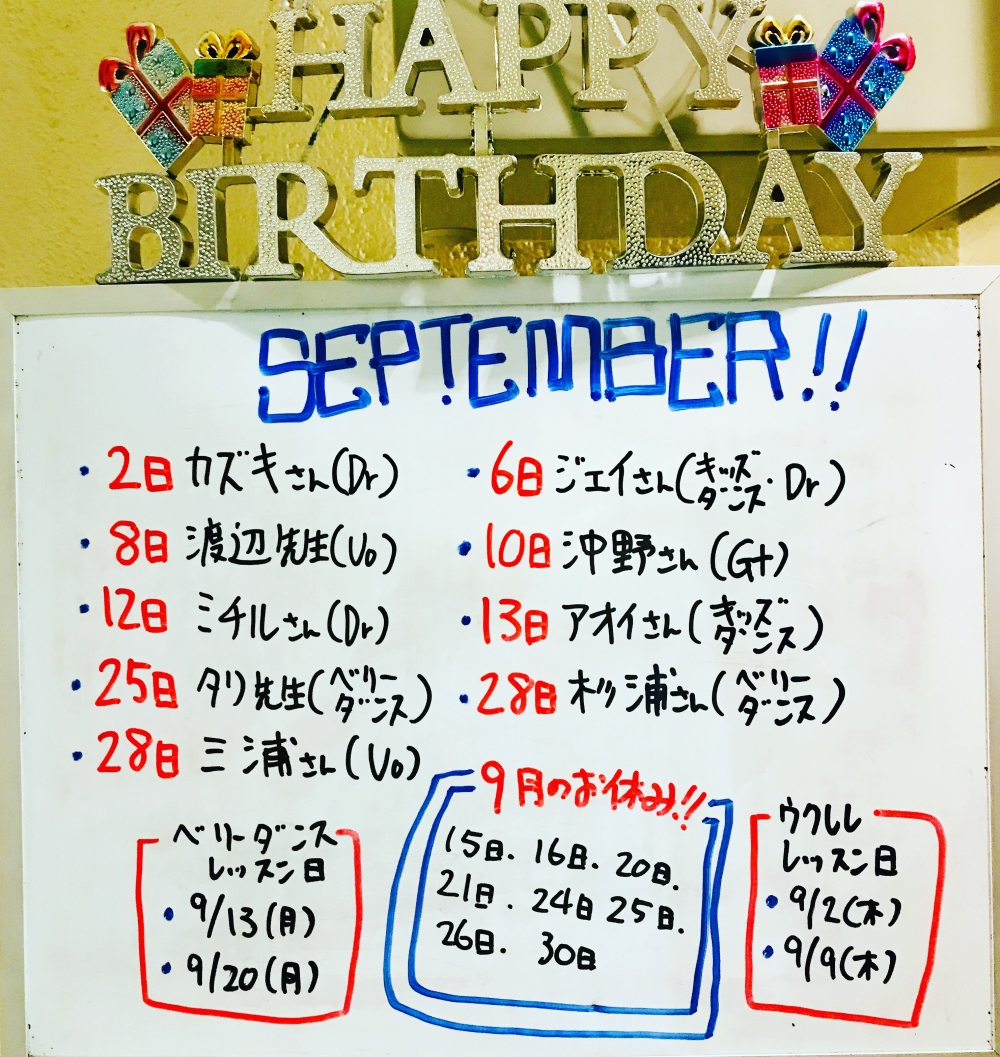 HAPPY
BIRTHDAY
SEPTEMBER!!
・2日 カズキさん(Dr)
・6日 ジェイさん(キッズダンス・Dr)
・8日 渡辺先生(Vo)
・10日 沖野さん(Gt)
・12日 ミチルさん(Dr)
・13日 アオイさん(キッズダンス)
・25日 タリ先生(ベリーダンス)
・28日 杉浦さん(ベリーダンス)
・28日 三浦さん(Vo)
ベリーダンス
レッスン日
・9/13(月)
・9/20(月)
9月のお休み!!
15日. 16日. 20日.
21日. 24日 25日.
26日. 30日
ウクレレ
レッスン日
・9/2(木)
・9/9(木)